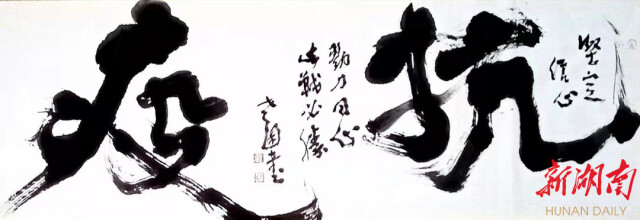 抗
坚定
信心
勠力同心
决戰必勝
疫
新湖南
HUNAN DAILY